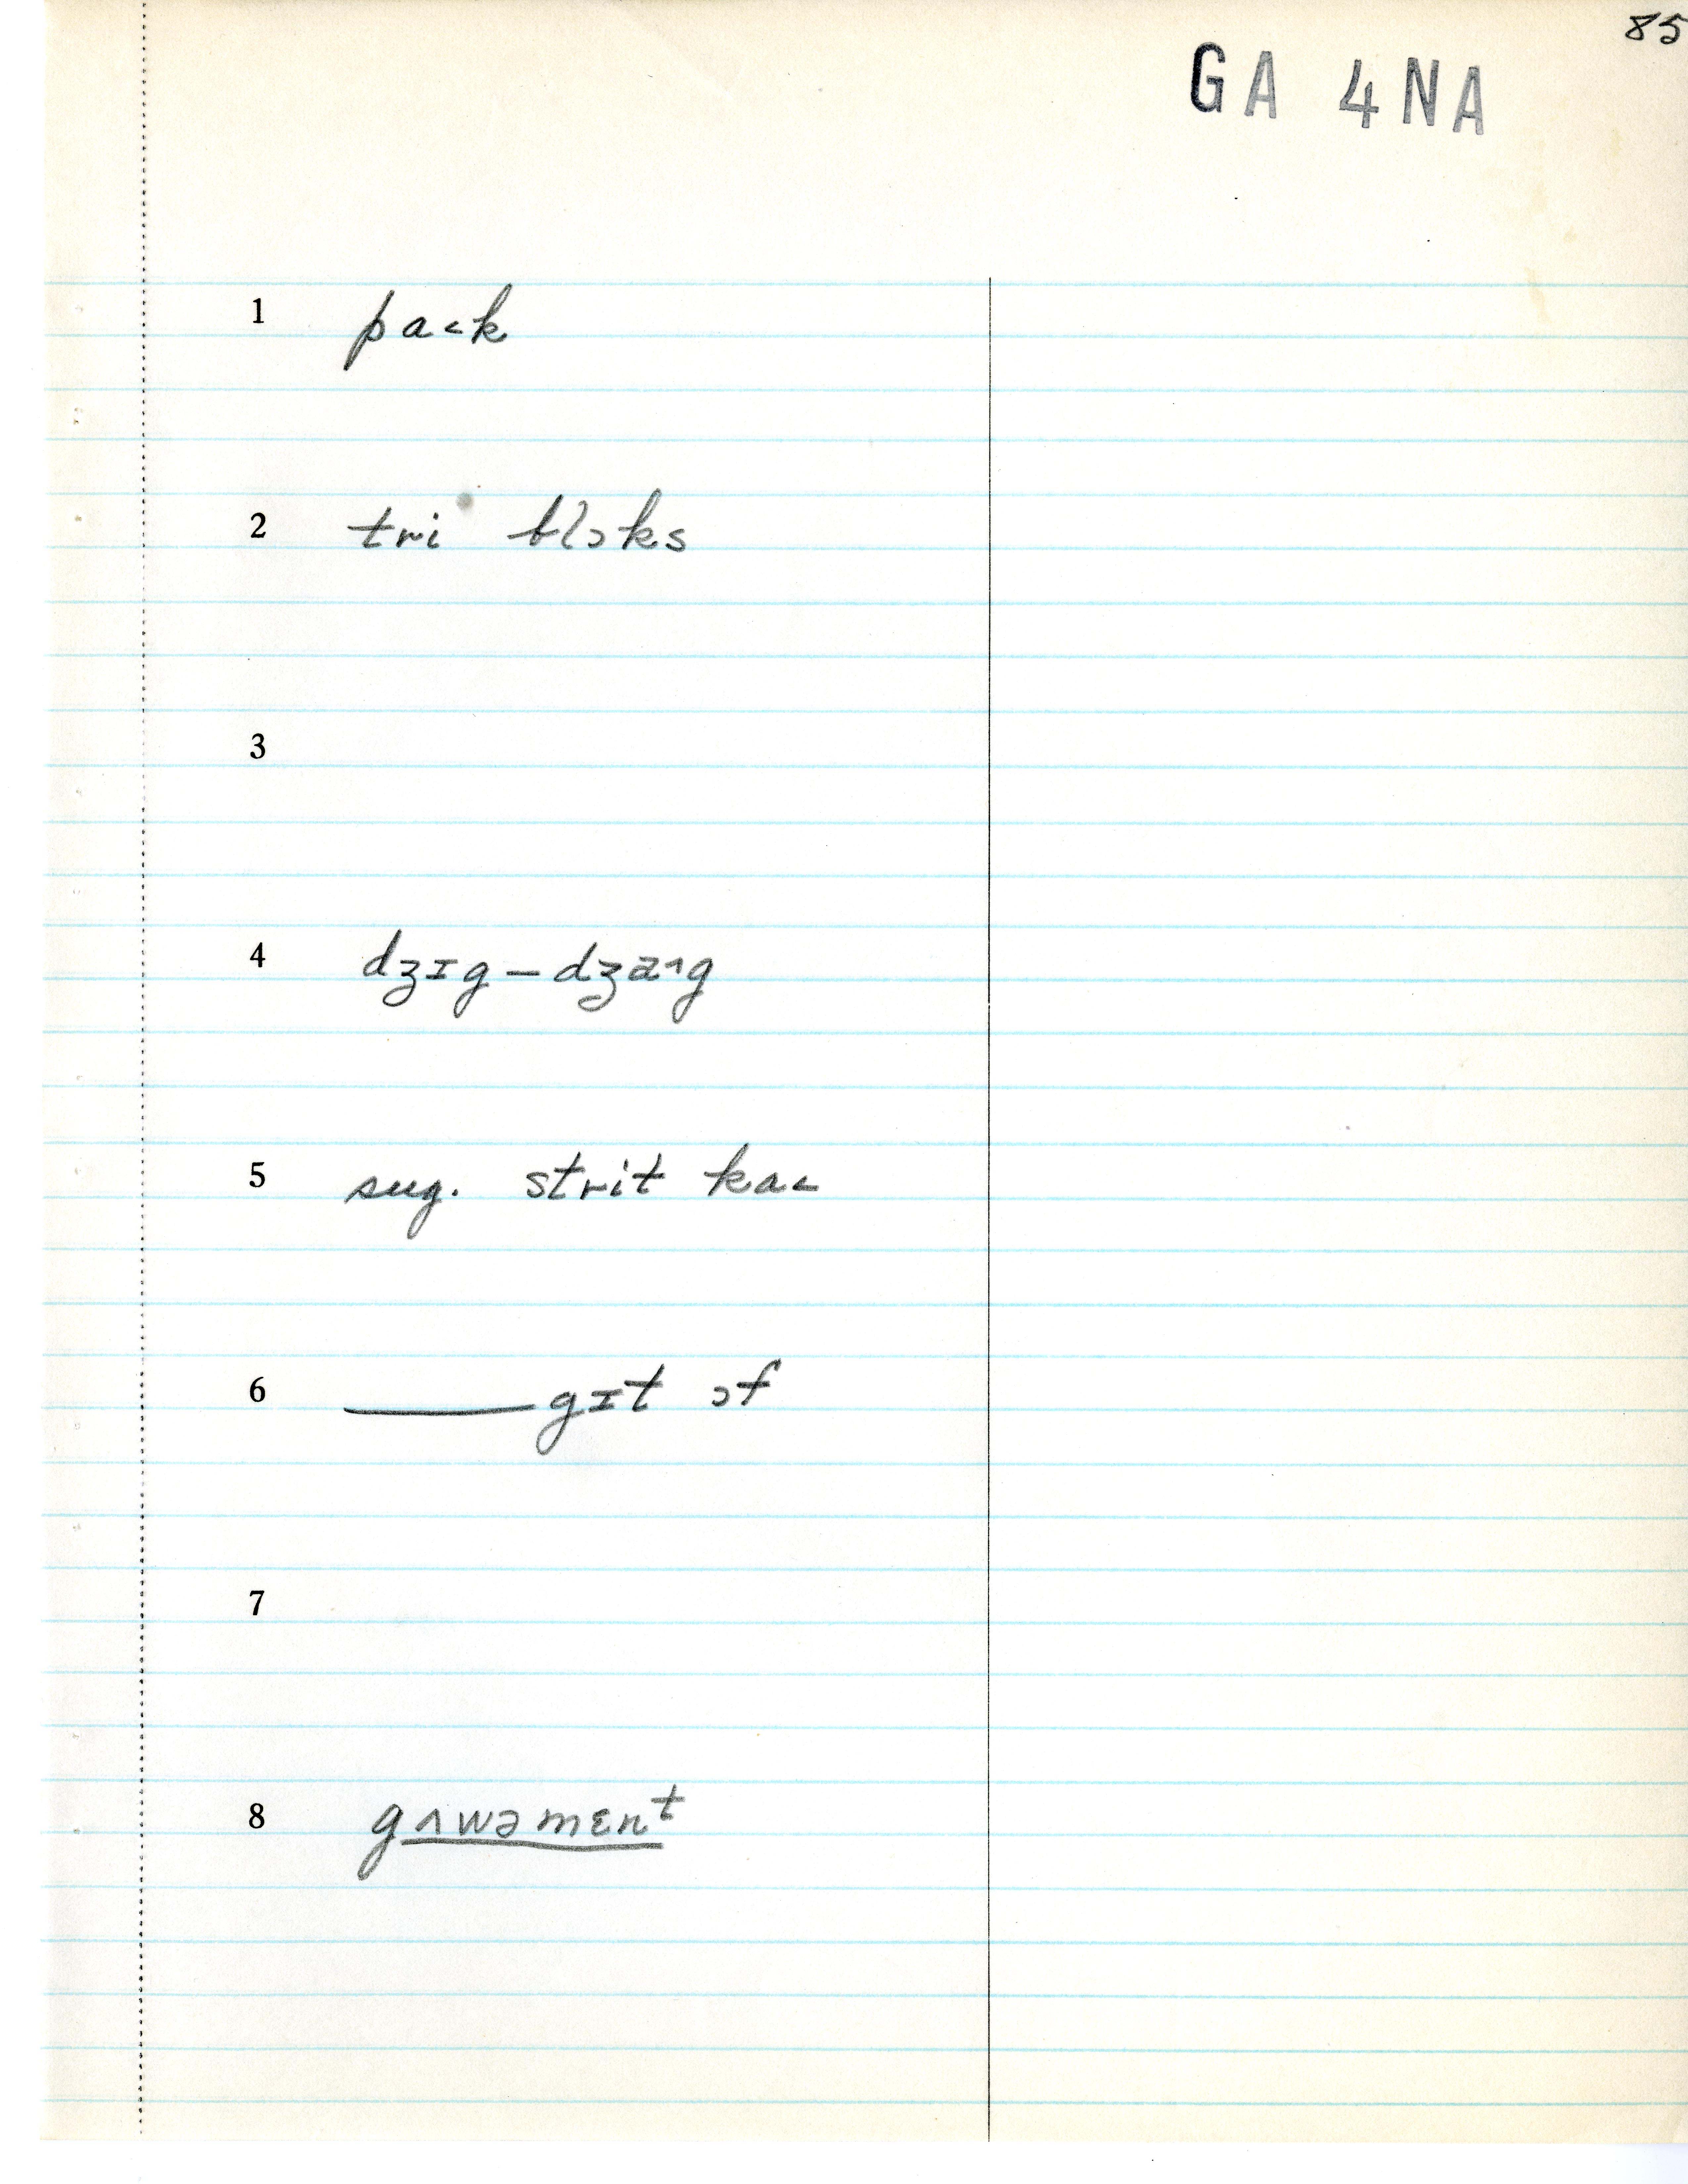 85
GA 4NA
1 pa˂k
2 tri blɔks
3
4 dʒɪg – dʒæ˄g
5 sug. strit ka˂
6 ______ gɪt ɔf
7
8 gʌwəmɛnᵗ